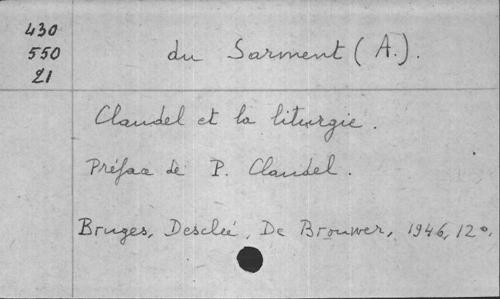 430
550
21
du Sarment (A.).
Claudel et la liturgie.
Préface de P. Claudel.
Bruges, Desclée, De Brouwer, 1946, 12°.